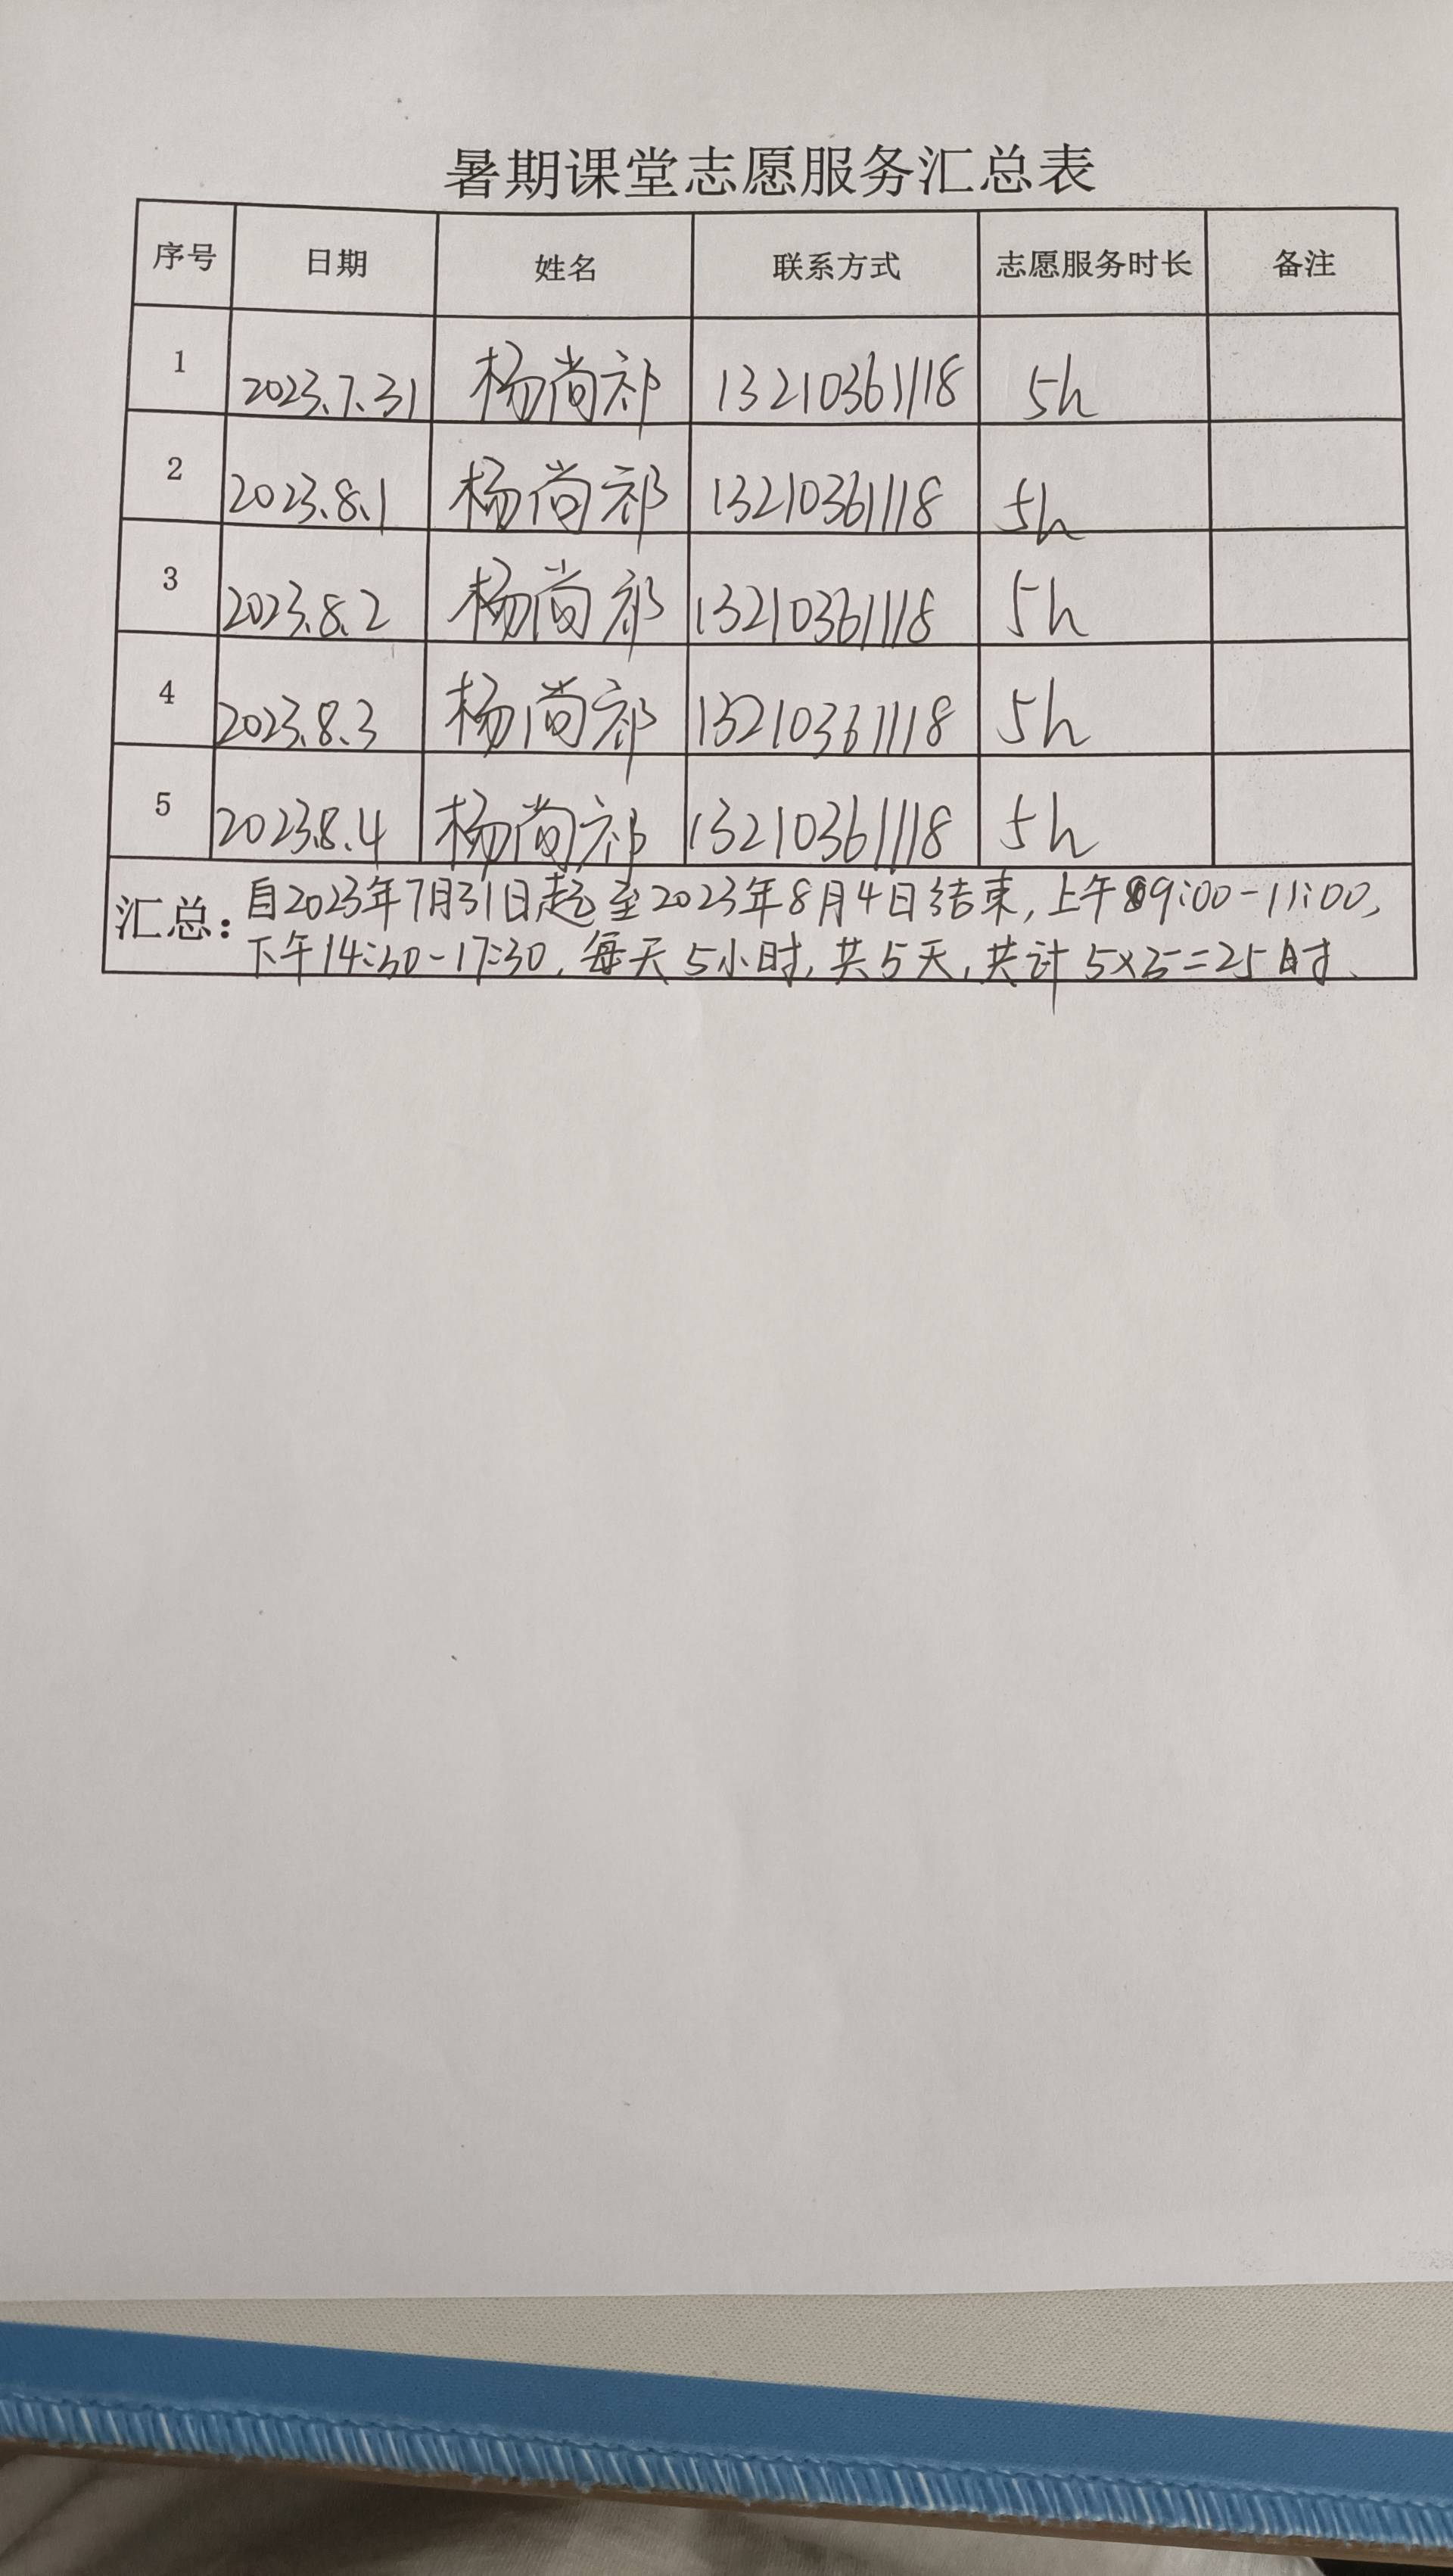 暑期课堂志愿服务汇总表
序号 日期 姓名 联系方式 志愿服务时长 备注
1 2023.7.31 杨尚祁 13210361118 5h
2 2023.8.1 杨尚祁 13210361118 5h
3 2023.8.2 杨尚祁 13210361118 5h
4 2023.8.3 杨尚祁 13210361118 5h
5 2023.8.4 杨尚祁 13210361118 5h
汇总：自2023年7月31日起至2023年8月4日结束，上午9:00-11:00，
下午14:30-17:30，每天5小时，共5天，共计5×5=25时、